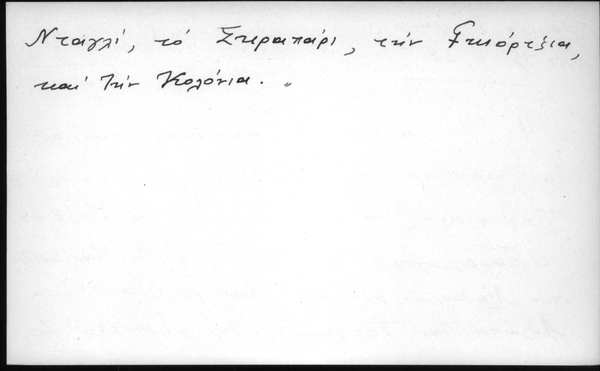 Νταγλί, τό Σκραπάρι, τήν Γκιόρτζια,
καί τήν Κολόνια. "